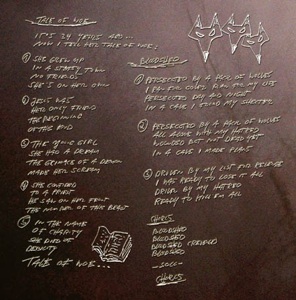 TALE OF WOE
IT'S 29 YEARS AGO...
NOW I TELL HER TALE OF WOE:
① SHE GREW UP
IN A STATEY TOWN
NO FRIENDS
SHE'S ON HER OWN
② JESUS WAS
HER ONLY FRIEND
THE BEGINNING
OF THE END
③ THE YOUNG GIRL
SHE HAD A DREAM
THE GRIMACE OF A DEMON
MADE HER SCREAM
④ SHE CONFIDED
TO A PRIEST
HE SAW ON HER FEET
THE NUMBER OF THE BEAST
⑤ IN THE NAME
OF CHARITY
SHE DIED
TALE OF WOE...
BLOODSHED
① PERSECUTED BY A PACK OF WOLVES
I RAN FOR MY LIFE
PERSECUTED DAY AND NIGHT
IN A CAVE I FOUND MY SHELTER
② PERSECUTED BY A PACK OF WOLVES
ALL ALONE WITH MY HATRED
WOUNDED BUT NOT DEAD YET
IN A CAVE I MADE PLANS
③ DRIVEN BY MY LUST FOR REVENGE
I WAS READY TO LOSE IT ALL
DRIVEN BY MY HATRED
READY TO KILL 'EM ALL
CHORUS
BLOODSHED
BLOODSHED
BLOODSHED (REVENGE)
BLOODSHED
-SOLO-
CHORUS